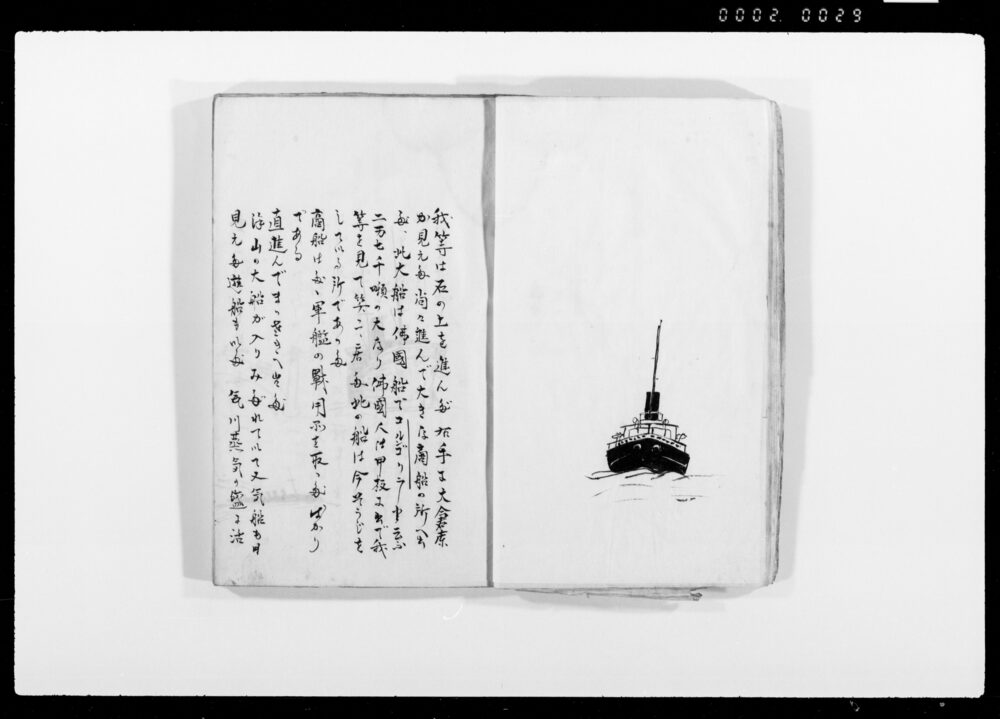 0002 0029
我等は石の上を進んだ 右手に大倉庫
が見えた 尚々進んで大きな商船の所へ出
た、此大船は佛國船でコルゴリラート云ふ
二万七千噸の大なり 佛國人は甲板に出で我
等を見て笑って居た 此の船は今そうじを
して いる所であった
商船はた 軍艦の戦用品を取った ばかり
である
直進んで へ出た
沖山の大船が入りみだれていて 又気船も
見えた 遊船も いた 川蒸気が盛に活